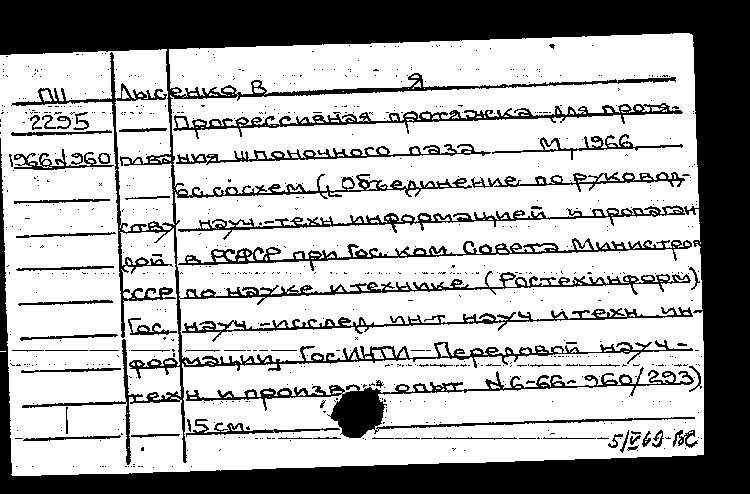 ПII Лысенко, В Я
2295 Прогрессивная протяжка для протя-
1966 N960 гивания шпоночного паза. М, 1966.
6с. со схем (Объединение по руковод-
ству науч.-техн информацией и пропаган
дой в РСФСР при Гос. ком. Совета Министров
СССР по науке и технике (Ростехинформ)
Гос. науч.-исслед. ин-т науч и техн. ин-
формации, ГосИНТИ. Передовой науч-
техн. и произв. опыт. N 6-66-960/293)
15 см.
5/V 69 ВС